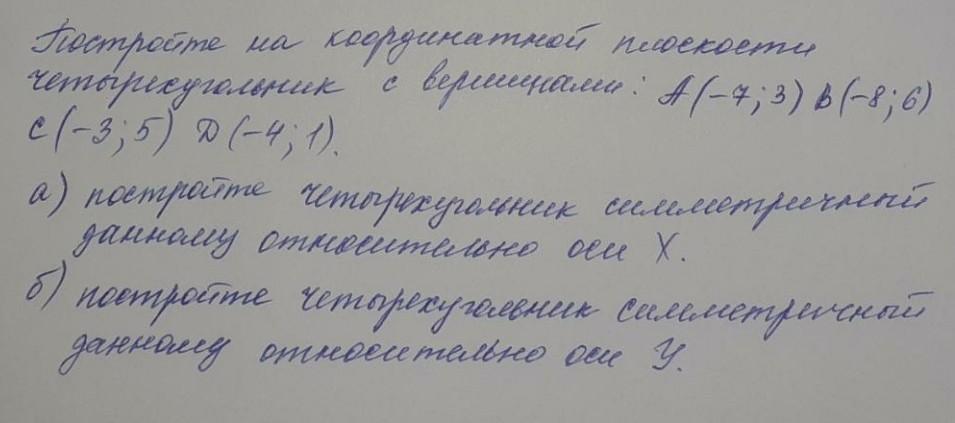 Постройте на координатной плоскости
четырехугольник с вершинами: А(-7; 3) В(-8; 6)
С(-3; 5) Д(-4; 1).
а) постройте четырехугольник симметричный
данному относительно оси Х.
б) постройте четырехугольник симметричный
данному относительно оси У.